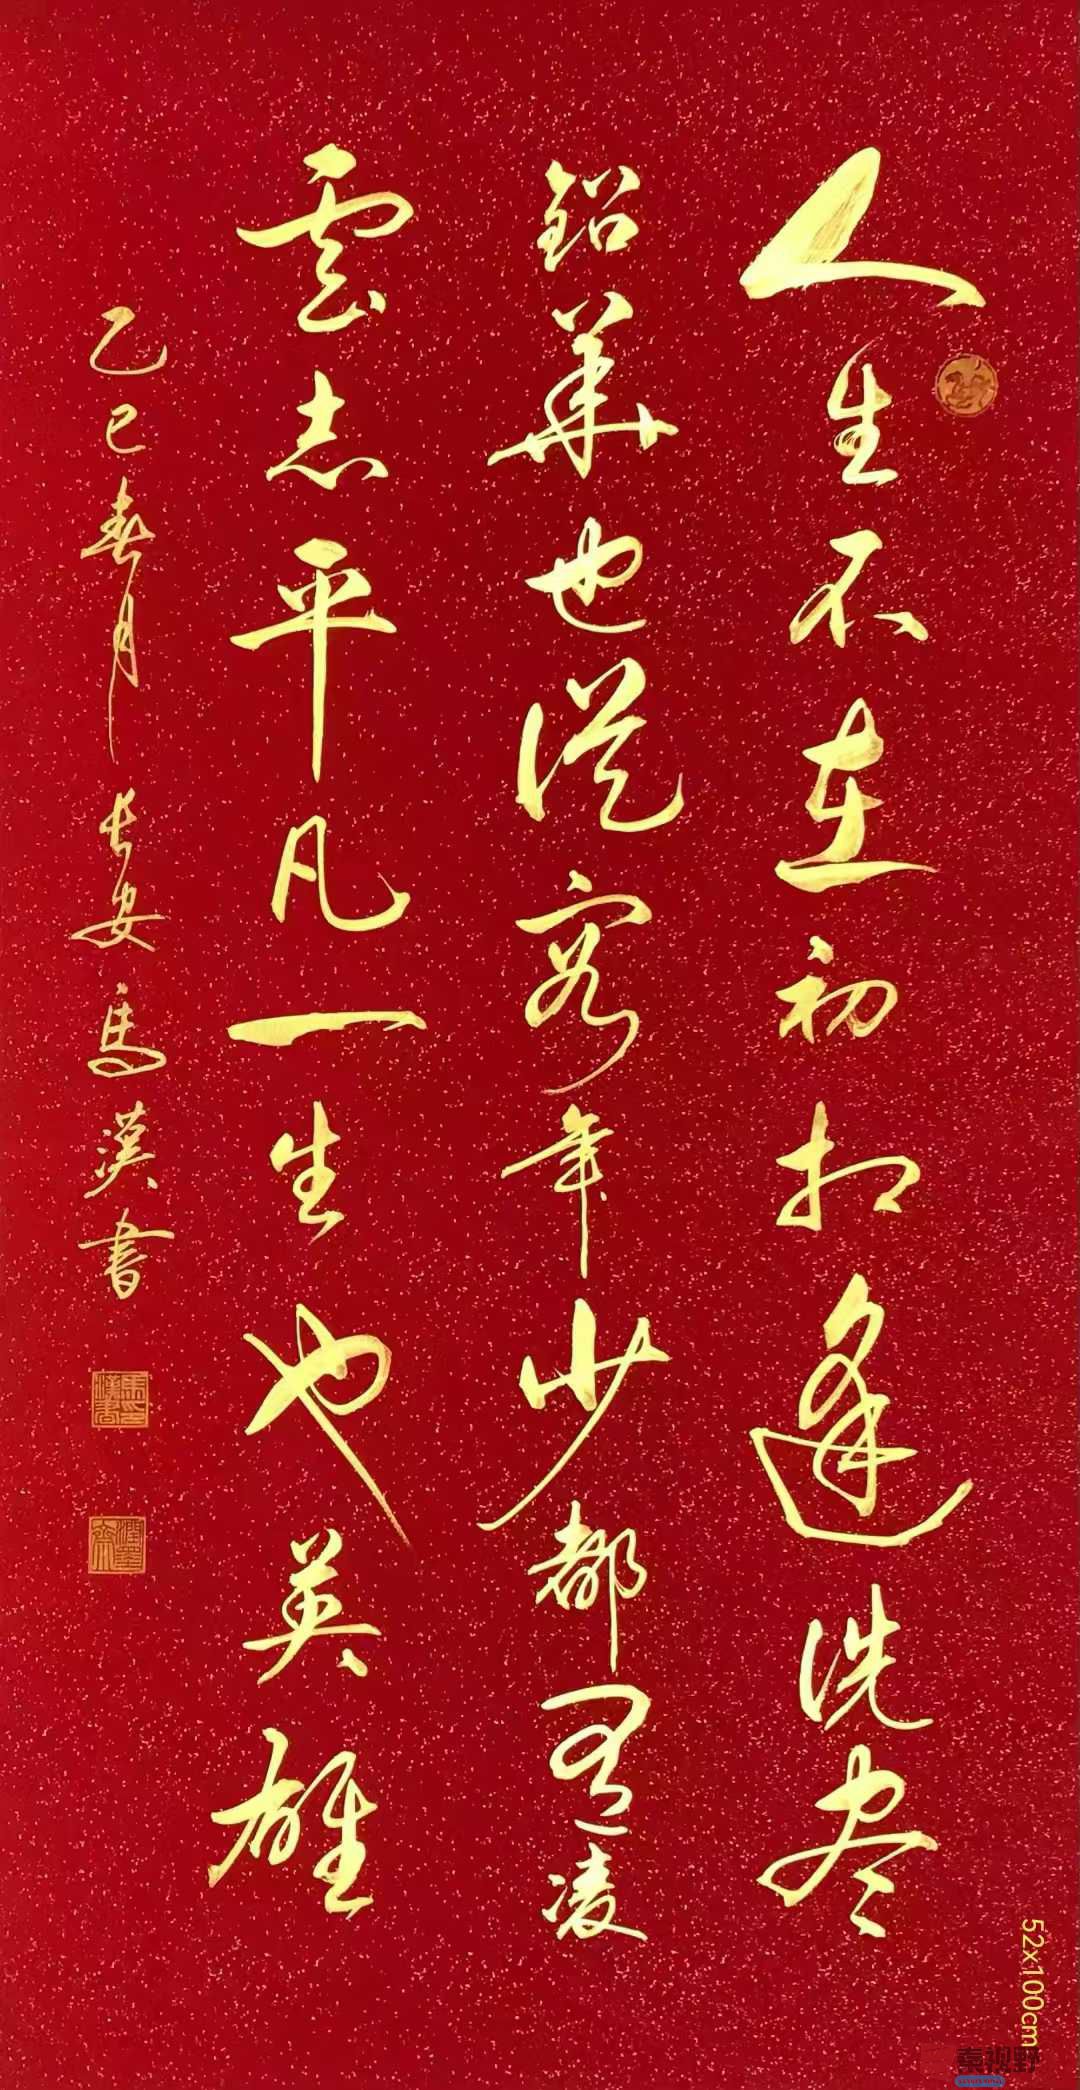 人生不在初相逢洗尽
鉛華也從容年少都有凌
雲志平凡一生也英雄
乙巳春月长安馬漢書
52x100cm
秦视野